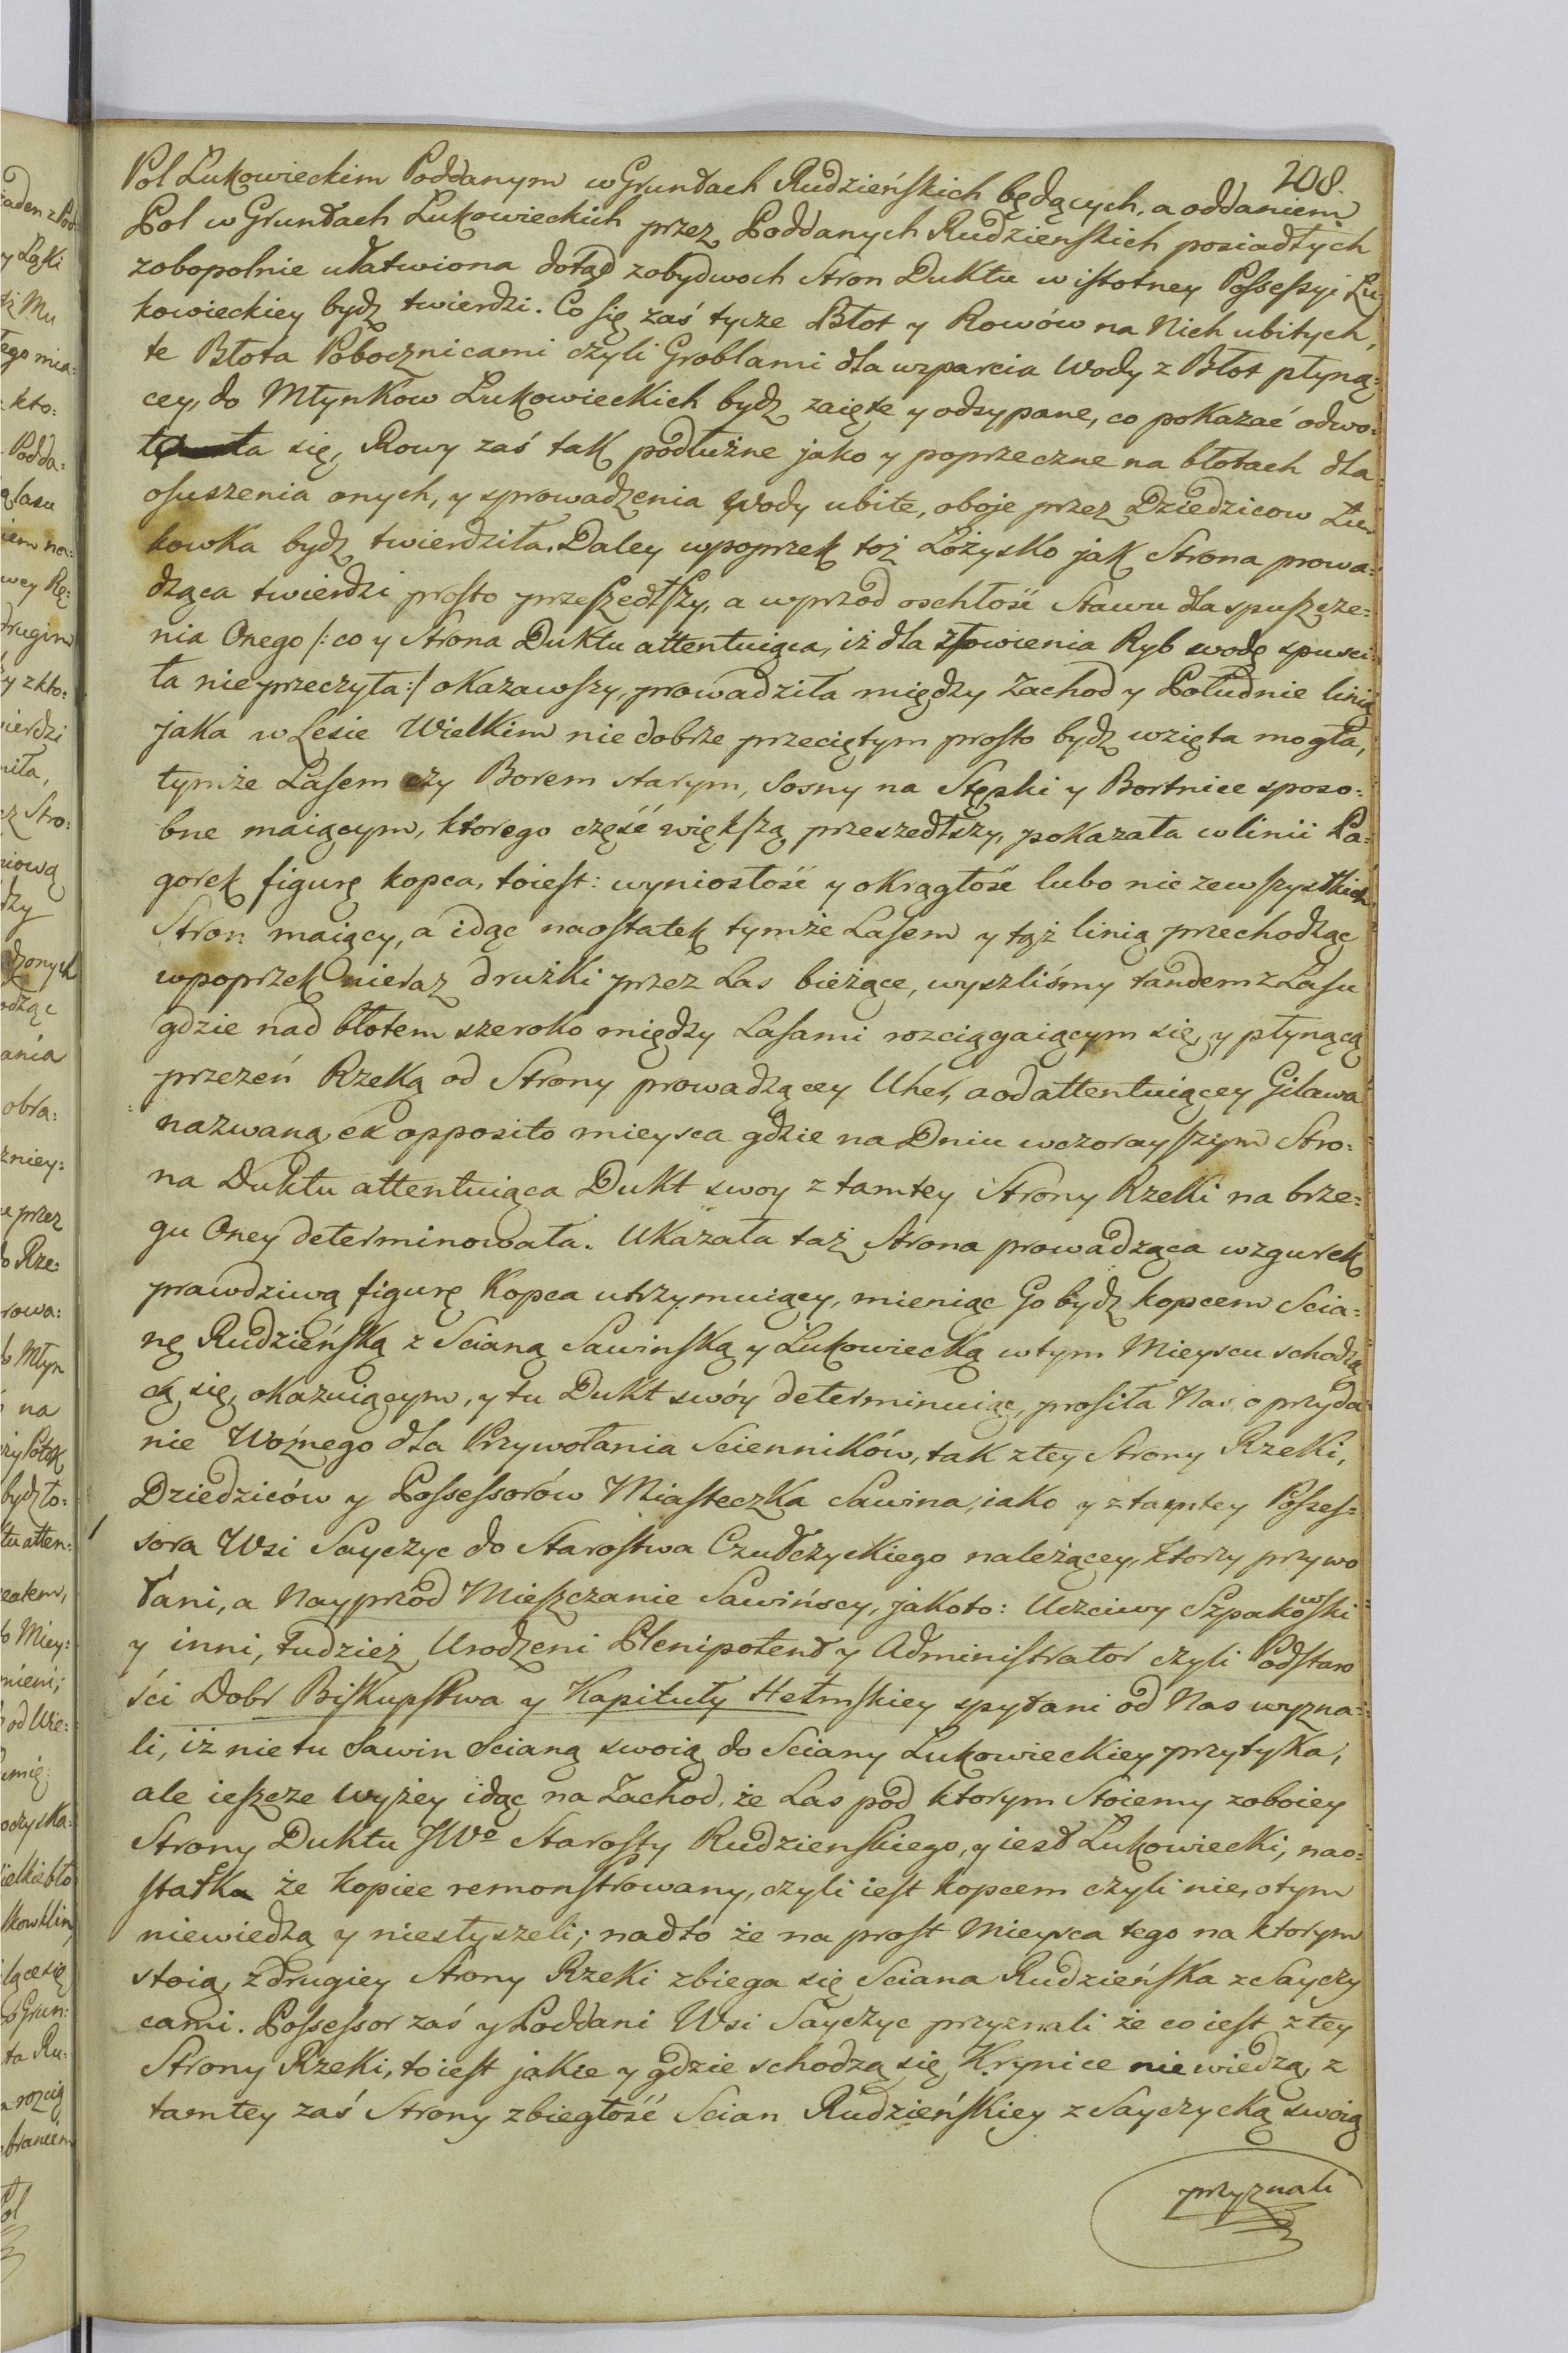 208.
Pol Łukowieckim Poddanym w Gruntach Rudzieńskich będących, a oddaniem
Pol w Gruntach Łukowieckich przez Poddanych Rudzienskich posiadłych
zobopolnie ułatwiona dotąd zobydwoch Stron Duktu w istotney Possessyi Łu
kowieckiey bydź twierdzi. Co się zaś tycze Błot y Rowów na Nich ubitych,
te Błota Pobocznicami czyli Groblami dla wzparcia Wody z Błot płyną:
cey, do Młynkow Łukowieckich bydź zaięte y odsypane, co pokazać odwo:
ła się, Rowy zaś tak podłużne jako y poprzeczne na błotach dla
osuszenia onych, y sprowadzenia Wody ubite, oboje przez Dziedzicow Łu
kowka bydź twierdziła. Daley wpoprzek toż Łożysko jak Strona prowa:
dząca twierdzi prosto przeszedłszy, a wprzod oschłość Stawu dla spuszcze:
nia Onego /: co y Strona Duktu attentuiąca, iż dla złowienia Ryb wodę spusci:
ła nieprzeczyła :/ okazawszy, prowadziła między Zachod y Południe linią
jaka w Lesie Wielkim nie dobrze przeciętym prosto bydź wzięta mogła,
tymże Lasem czy Borem starym, Sosny na Stępki y Bortnice sposo:
bne maiącym, ktorego część większą przeszedłszy, pokazała w linii Pa:
gorek figurę kopca, toiest: wyniosłość y okrągłość lubo nie zewszystkich
Stron maiący, a idąc naostatek tymże Lasem y tąż linią przechodząc
wpoprzek nieraz drużki przez Las bieżące, wyszliśmy tandem z Lasu
gdzie nad błotem szeroko między Lasami rozciągaiącym się, y płynącą
przezeń Rzeką od Strony prowadzącey Uher, a od attentuiącey Gilawa
nazwaną, ex opposito mieysca gdzie na Dniu wczorayszym Stro:
na Duktu attentuiąca Dukt swoy z tamtey Strony Rzeki na brze:
gu Oney determinowała. Ukazała taż Strona prowadząca wzgurek
prawdziwą figurę Kopca utrzymuiący, mieniąc Go bydź kopcem Scia:
nę Rudzieńską z Scianą Sawinską y Łukowiecką w tym Mieyscu schodzą
cą się, okazuiącym, y tu Dukt swóy determinuiąc, prosiła Nas o przyda
nie Woźnego dla Przywołania Scienników, tak z tey Strony Rzeki,
Dziedziców y Possessorów Miasteczka Sawina, iako y z tamtey Posses=
sora Wsi Sayczyc do Starostwa Czułczyckiego należącey, ktorzy przywo
łani, a Nayprzód Mieszczanie Sawińscy, jakoto: Uczciwy Szpakowski
y inni, tudzież Urodzeni Plenipotent y Administrator czyli Podstaro
ści Dobr Biskupstwa y Kapituły Hełmskiey spytani od Nas wyzna:
li, iż nie tu Sawin Scianą swoią do Sciany Łukowieckiey przytyka,
ale ieszcze wyżey idąc na Zachod, że Las pod ktorym Stoiemy zoboiey
Strony Duktu JWo Starosty Rudzienskiego, y iest Łukowiecki, nao:
statka że kopiec remonstrowany, czyli iest kopcem czyli nie, o tym
niewiedzą y niesłyszeli; nadto że na prost Mieysca tego na ktorym
stoią, z drugiey Strony Rzeki zbiega się Sciana Rudzieńska z Sayczy
cami. Possessor zaś y Poddani Wsi Sayczyc przyznali że co iest z tey
Strony Rzeki, to iest jakie y gdzie schodzą się Krynice niewiedzą, z
tamtey zaś Strony zbiegłość Scian Rudzieńskiey z Sayczycką swoią
przyznali